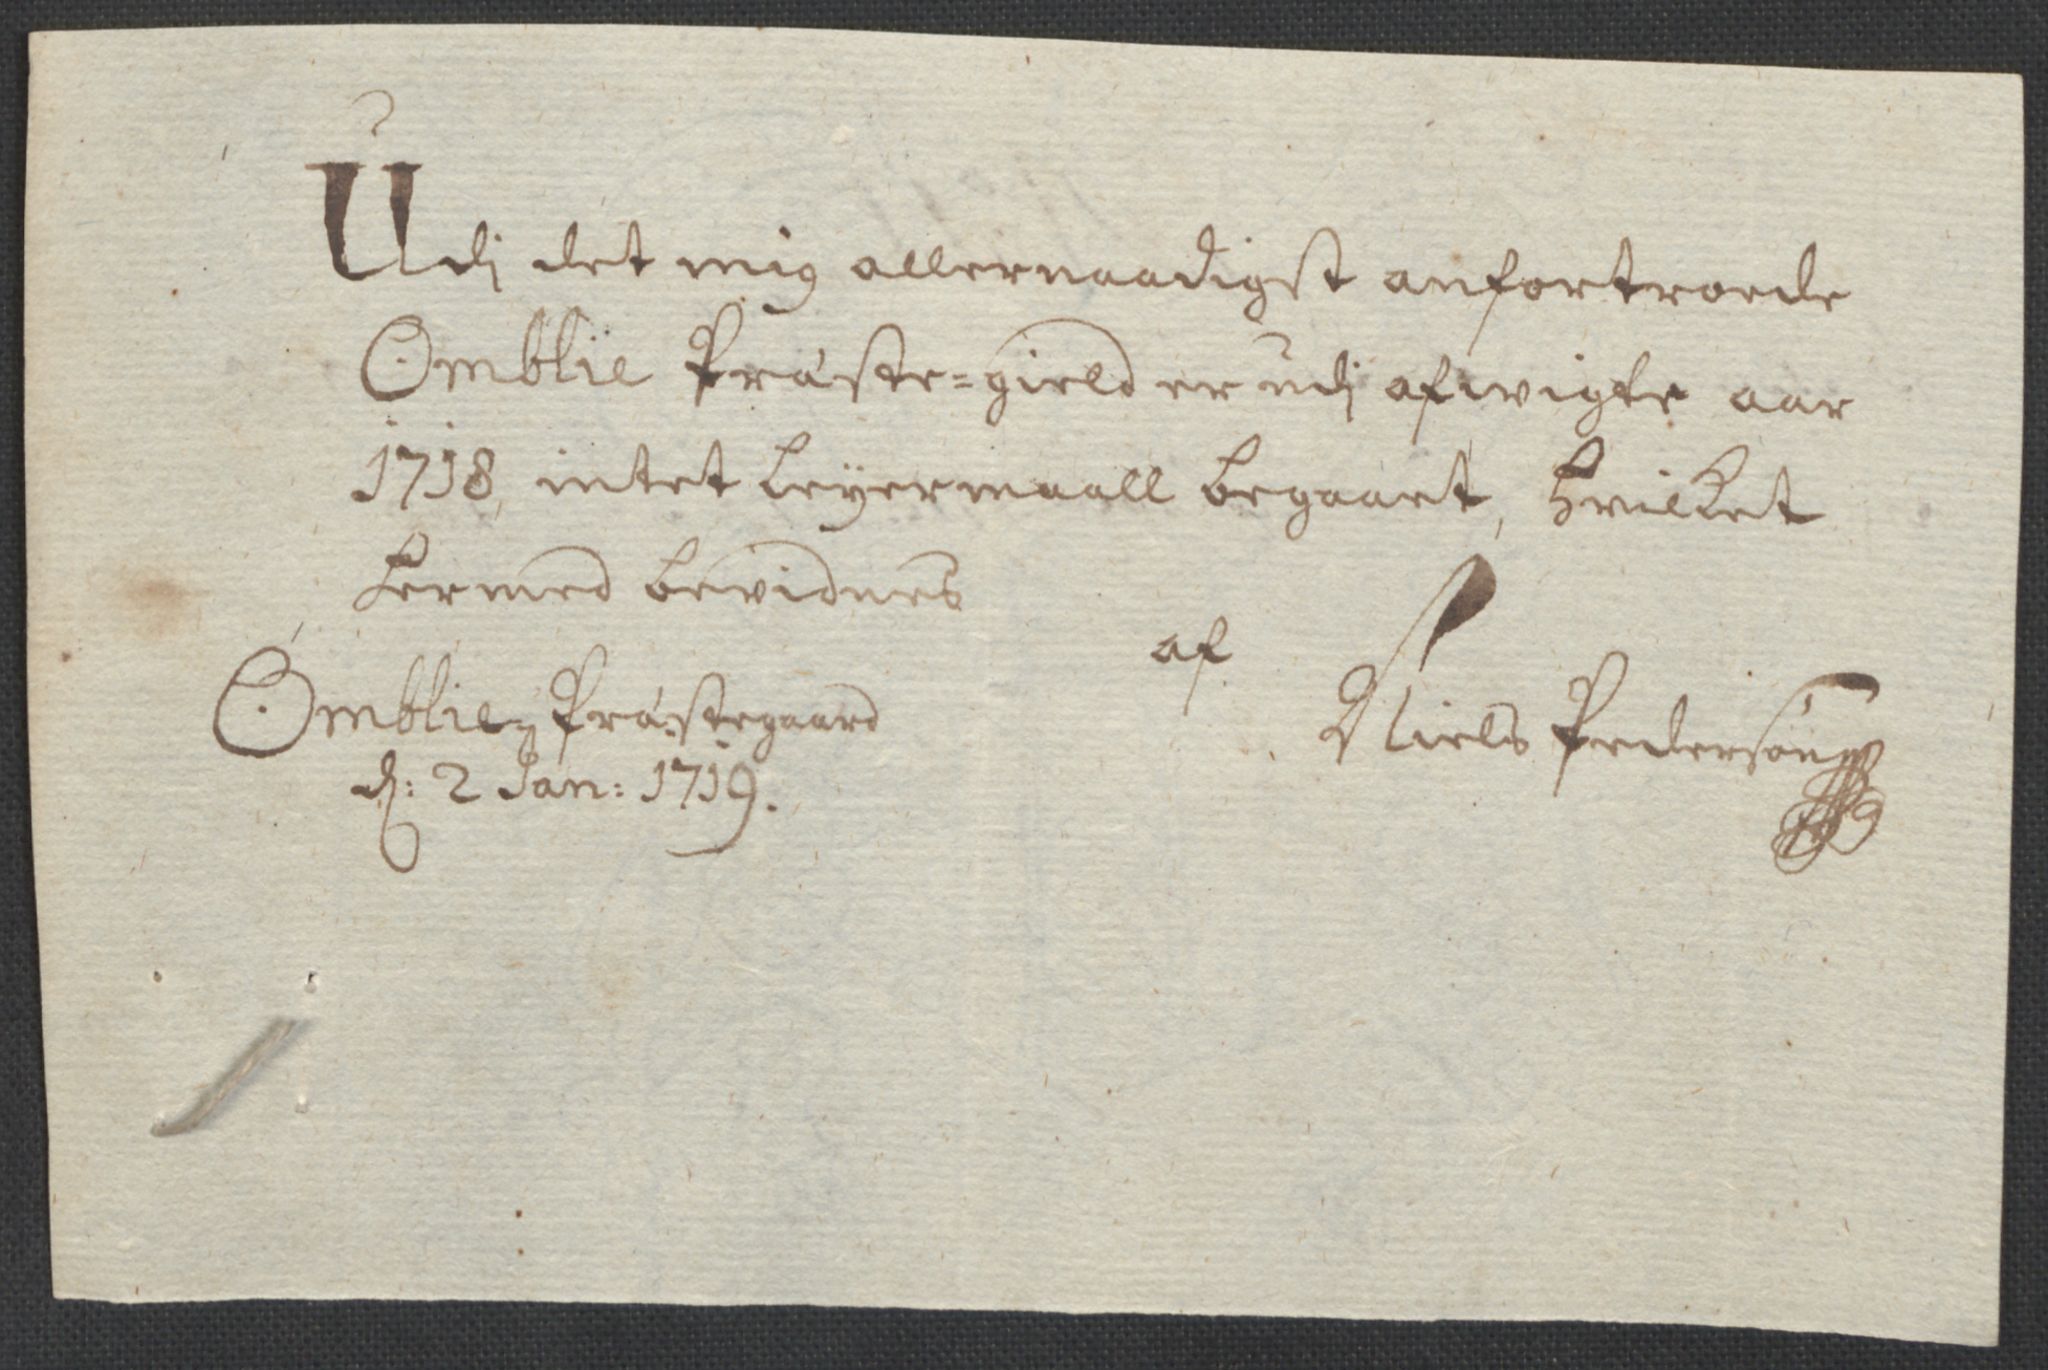 Udj det mig allernaadigst anfortroede
Omblie Præste-gield er udj afwigte aar
1718, intet Leyermaall begaaet, hvilket
hermed bevidnes
af
Omblie Præstegaard
Niels Pedersøn
d: 2 Jan: 1719.